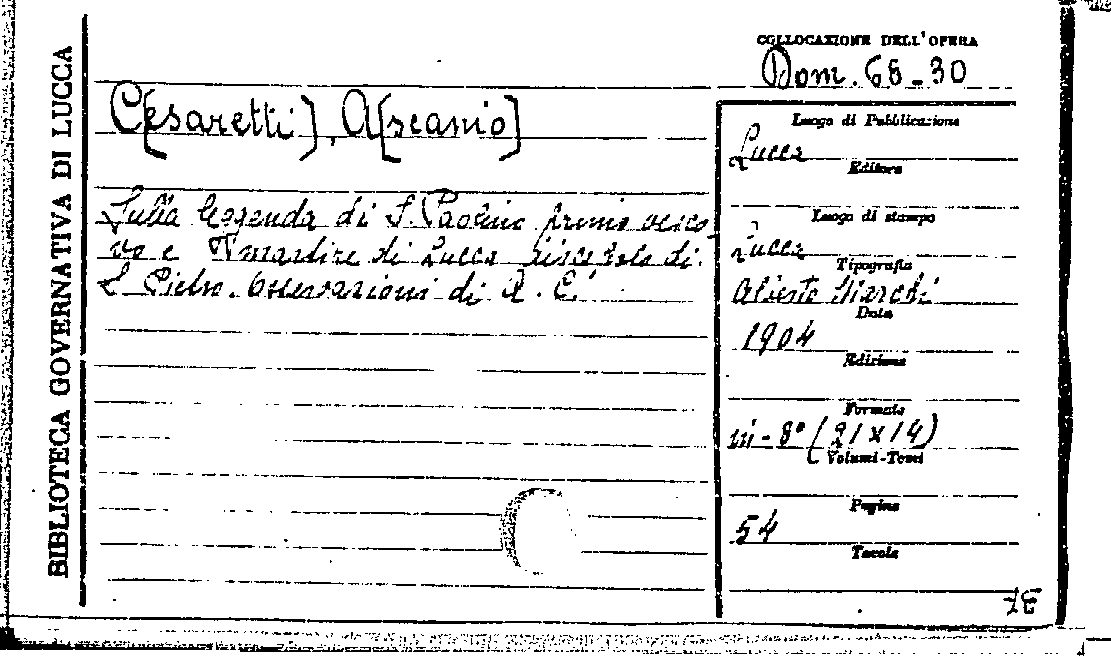 BIBLIOTECA GOVERNATIVA DI LUCCA
COLLOCAZIONE DELL'OPERA
Dom. 68-30
C[esaretti], A[scanio]
Sulla leggenda di S. Paolino primo vesco-
vo e martire di Lucca discepolo di
S. Pietro. Osservazioni di A. C.
Luogo di Pubblicazione
Lucca
Editore
Luogo di stampo
Lucca
Tipografia
Alberto Marchi
Data
1904
Edizione
Formato
in-8° (21x14)
Volumi-Tomi
Pagine
54
Tavole